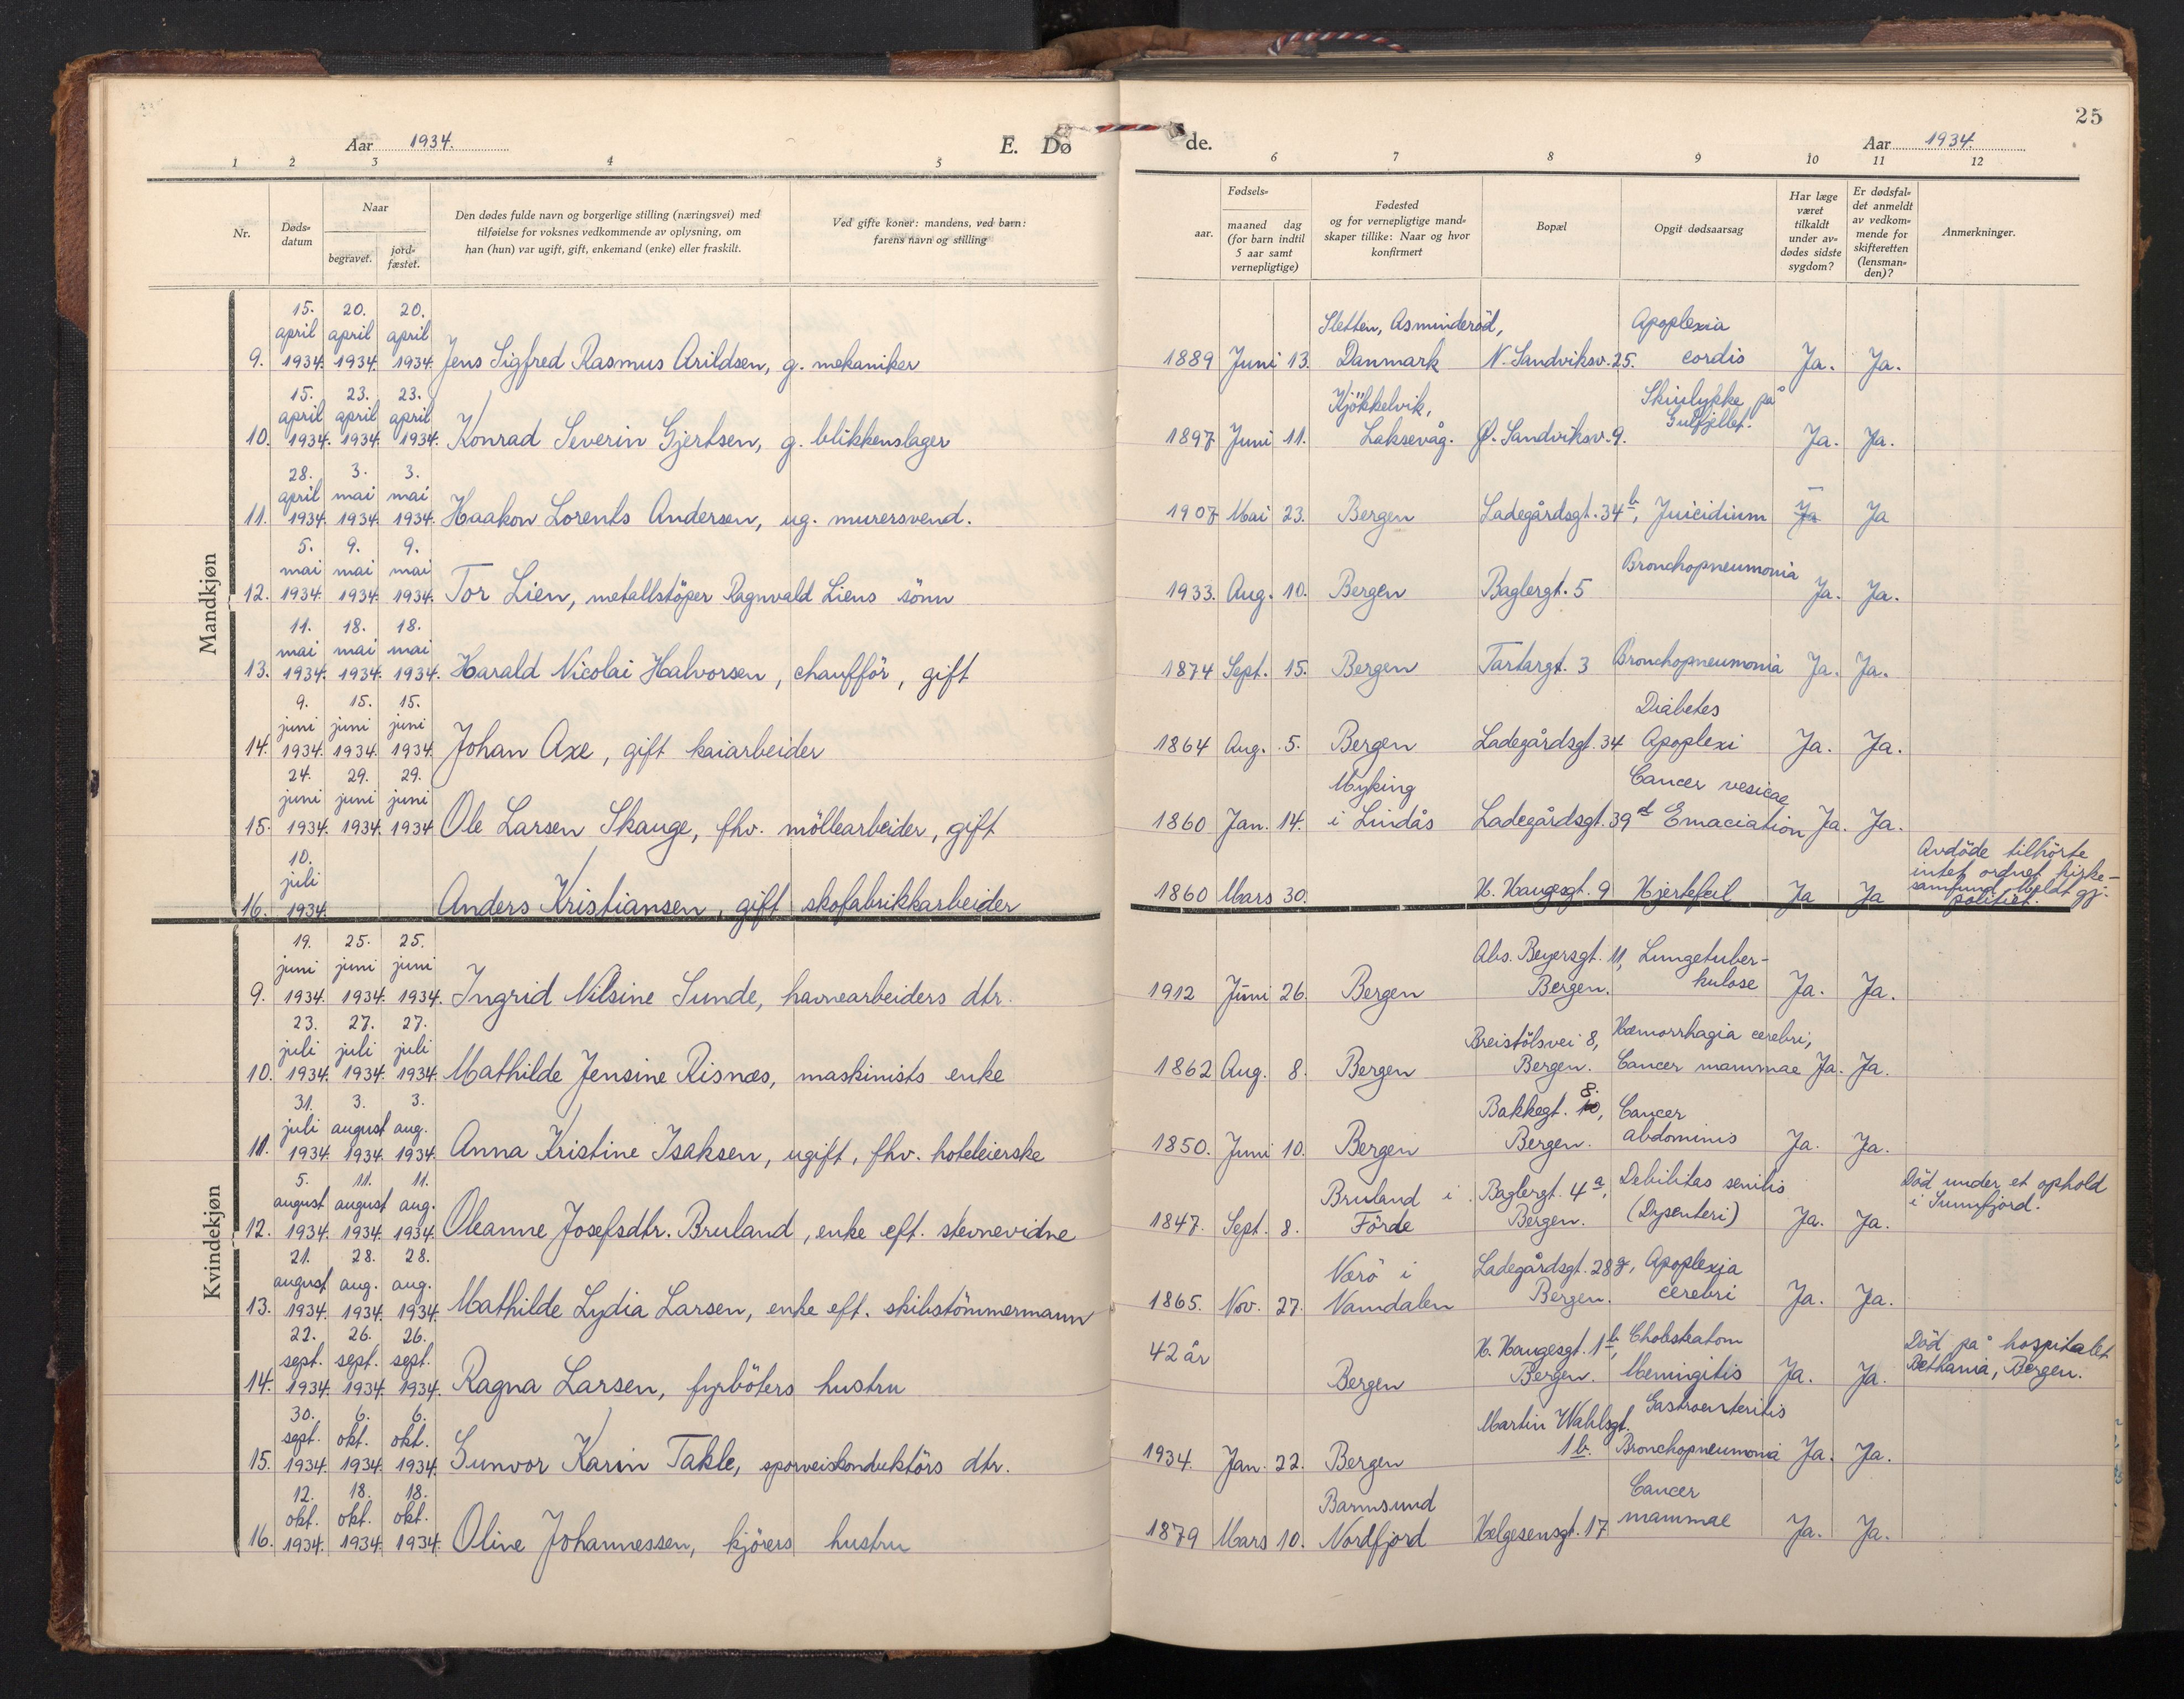 25
Aar 1934.
E. Dø
de.
Aar 1934.
1 2 3 4 5 6 7 8 9 10 11 12
Nr.
Døds-
datum
Naar
begravet.
jord-
fæstet.
Den dødes fulde navn og borgerlige stilling (næringsvei) med
tilføielse for voksnes vedkommende av oplysning, om
han (hun) var ugift, gift, enkemand (enke) eller fraskilt.
Ved gifte koner: mandens, ved barn:
farens navn og stilling
Fødsels-
aar.
maaned dag
(for barn indtil
5 aar samt
vernepligtige)
Fødested
og for vernepligtige mand-
skaper tillike: Naar og hvor
konfirmert
Bopæl
Opgit dødsaarsag
Har læge
været
tilkaldt
under av-
dødes sidste
sygdom?
Er dødsfal-
det anmeldt
av vedkom-
mende for
skifteretten
(lensman-
den)?
Anmerkninger.
Mandkjøn
15. 20. 20. Sletten, Asminderöd, Apoplexia
april april april
9. 1934. 1934. 1934. Jens Sigfred Rasmus Arildsen, g. mekaniker 1889 Juni 13. Danmark N. Sandviksv. 25. cordis Ja. Ja.
15. 23. 23. Kjökkelvik, Skiulykke på
april april april Gulfjellet.
10. 1934. 1934. 1934. Konrad Severin Gjertsen, g. blikkenslager 1897 Juni 11. Laksevåg. Ø. Sandviksv. 9. Ja. Ja.
28. 3. 3.
april mai mai
11. 1934. 1934. 1934. Haakon Lorents Andersen, ug. murersvend. 1907 Mai 23. Bergen Ladegårdsgt. 34 b, Suicidium Ja Ja
5. 9. 9.
mai mai mai Bronchopneumonia
12. 1934. 1934. 1934. Tor Lien, metallstöper Ragnvald Liens sönn 1933. Aug. 10. Bergen Baglergt. 5 Ja. Ja.
11. 18. 18.
mai mai mai
13. 1934. 1934. 1934. Harald Nicolai Halvorsen, chaufför, gift 1874 Sept. 15. Bergen Tartargt. 3 Bronchopneumonia Ja. Ja.
9. 15. 15. Diabetes
juni juni juni
14. 1934. 1934. 1934. Johan Axe, gift kaiarbeider 1864 Aug. 5. Bergen Ladegårdsgt. 34 Apoplexi Ja. Ja.
24. 29. 29. Myking Cancer vesicae
juni juni juni
15. 1934. 1934. 1934. Ole Larsen Skauge, fhv. möllearbeider, gift 1860 Jan. 14. i Lindås Ladegårdsgt. 39 d Emaciation Ja. Ja.
10. Avdöde tilhörte
juli intet ordnet kirke-
16. 1934. Anders Kristiansen, gift skofabrikkarbeider 1860 Mars 30. H. Haugesgt. 9 Hjertefeil Ja Ja samfund. Meldt gj.
politiet.
Kvindekjøn
19. 25. 25. Abs. Beyersgt. 11, Lungetuber-
juni juni juni
9. 1934. 1934. 1934. Ingrid Nilsine Sunde, havnearbeiders dtr. 1912 Juni 26. Bergen Bergen. kulose Ja. Ja.
23. 27. 27. Breistölsvei 8, Hæmorrhagia cerebri,
juli juli juli
10. 1934. 1934. 1934. Mathilde Jensine Risnæs, maskinists enke 1862 Aug. 8. Bergen Bergen. Cancer mammae Ja. Ja.
31. 3. 3. Bakkegt. 10, 8. Cancer
juli august aug.
11. 1934. 1934. 1934. Anna Kristine Isaksen, ugift, fhv. hoteleierske 1850. Juni 10. Bergen Bergen. abdominis Ja. Ja.
5. 11. 11. Bruland i Baglergt. 4 a, Debilitas senilis Död under et ophold
august august aug. i Sunnfjord.
12. 1934. 1934. 1934. Oleanne Josefsdtr. Bruland, enke eft. stevnevidne 1847. Sept. 8. Förde Bergen. (Dysenteri) Ja. Ja.
21. 28. 28. Nærö i Ladegårdsgt. 28 g, Apoplexia
august aug. aug.
13. 1934. 1934. 1934. Mathilde Lydia Larsen, enke eft. skibstömmermann 1865. Nov. 27. Namdalen Bergen. cerebri Ja. Ja.
22. 26. 26. 42 år H. Haugesgt. 1 b, Cholesteatom Död på hospitalet
sept. sept. sept. Bethania, Bergen.
14. 1934. 1934. 1934. Ragna Larsen, fyrböters hustru Bergen Bergen. Meningitis Ja. Ja.
30. 6. 6. Martin Wahlsgt. Gastroenteritis
sept. okt. okt.
15. 1934. 1934. 1934. Gunvor Karin Takle, sporveiskonduktörs dtr. 1934. Jan. 22. Bergen 1 b. Bronchopneumonia Ja. Ja.
12. 18. 18. Barmsund Cancer
okt. okt. okt.
16. 1934. 1934. 1934. Oline Johannessen, kjörers hustru 1879 Mars 10. Nordfjord Helgesensgt. 17 mammae Ja. Ja.